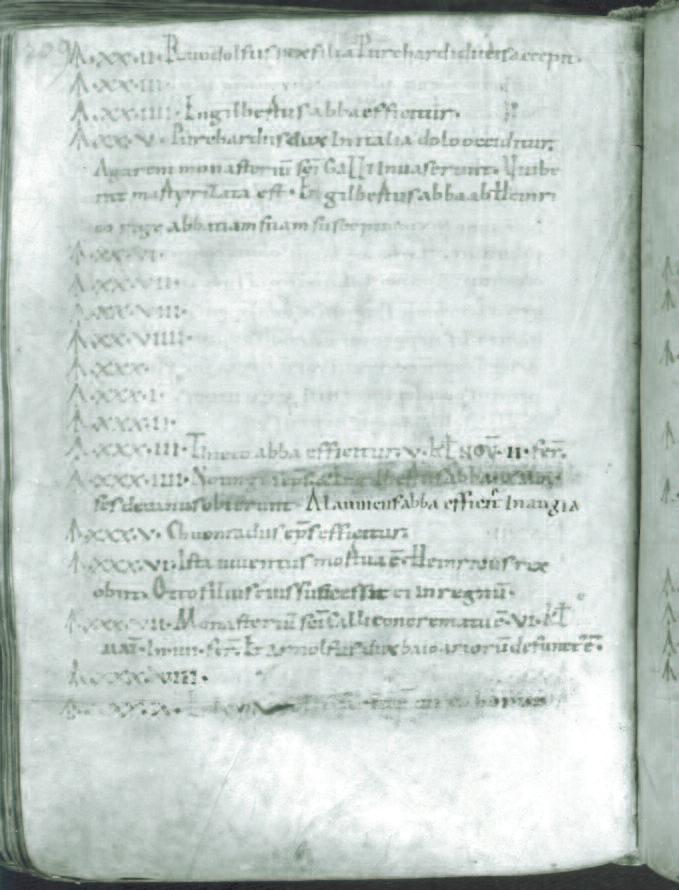 209
A. XX. II. Ruodolfus rex filia Purchardi ducis accepit.
A. XX. III.
A. XX. IIII. Engilbertus abba efficitur.
A. XX. V. Purchardus dux In italia dolo occiditur.
Agareni monasteriū sc̄i GALLI Inuaserunt. Uuibe
rat martyrizata est. Engilbertus abba ab Heinri
co rege abbatiam suam suscepit
A. XX. VI.
A. XX. VII.
A. XX. VIII.
A. XX. VIIII.
A. XXX.
A. XXX. I.
A. XXX. II.
A. XXX. III. Thieto abba efficitur. V. kł NOV̄. II. fer̄.
A. XXX. IIII. Engilbertus abba
decanus obierunt. Alauuicus abba effici&#x0304; In augia
A. XXX. V. Chuonradus ep̄s efficitur.
A. XXX. VI. Ista iuuentus mortua ē. Heinricus rex
obiit. Otto filius eius successit ei in regnū.
A. XXX. VII. Monasteriū sc̄i Galli concrematū ē. VI. kł
MAI. In. IIII. fer̄. Et arnolfus dux baioariorū defunct' ē.
A. XXX. VIII.
A. XXX. IX.